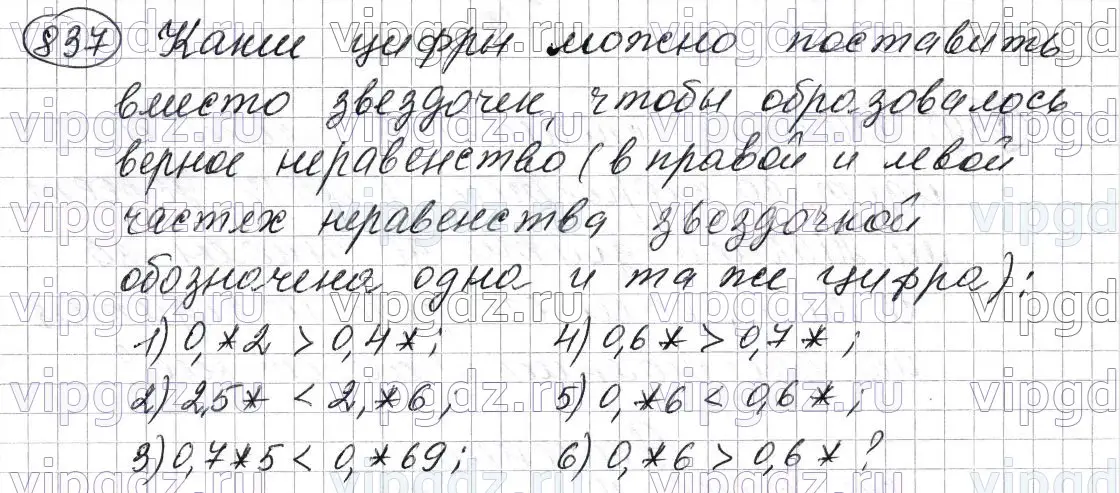 837 Какие цифры можно поставить
вместо звездочек, чтобы образовалось
верное неравенство (в правой и левой
частях неравенства звездочкой
обозначена одна и та же цифра):
1) 0,*2 > 0,4*; 4) 0,6* > 0,7*;
2) 2,5* < 2,*6; 5) 0,*6 < 0,6*;
3) 0,7*5 < 0,*69; 6) 0,*6 > 0,6*?
vipgdz.ru